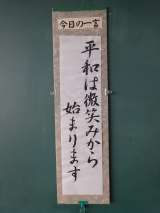 今日の一言
平和は微笑みから
始まります